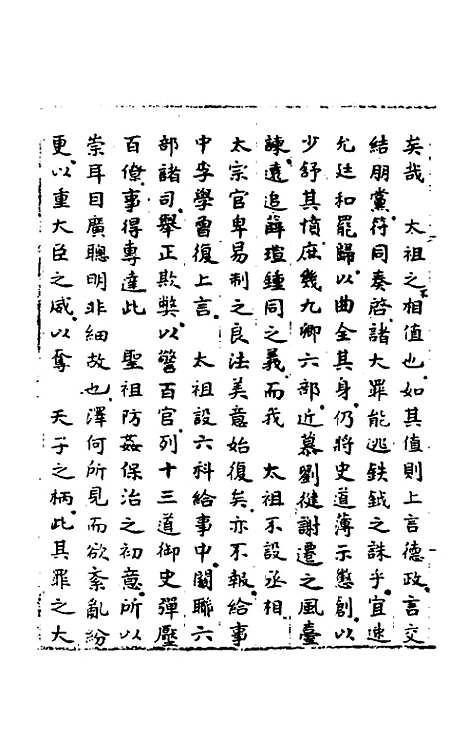 矣哉　太祖之不相值也如其值則上言德政言交
結朋黨符同奏啓諸大罪能逃鈇鉞之誅乎宜速
允廷和罷歸以曲全其身仍將史道薄示懲創以
少舒其憤庶幾九卿六部近慕劉健謝遷之風臺
諫遠追薛瑄鍾同之義而我　太祖不設丞相
太宗官卑易制之良法美意始復矣亦不報給事
中李學曾復上言　太祖設六科給事中關聯六
部諸司舉正欺弊以警百官列十三道御史彈壓
百僚事得專達此　聖祖防姦保治之初意所以
崇耳目廣聰明非細故也澤何所見而欲紊亂紛
更以重大臣之威以奪　天子之柄此其罪之大